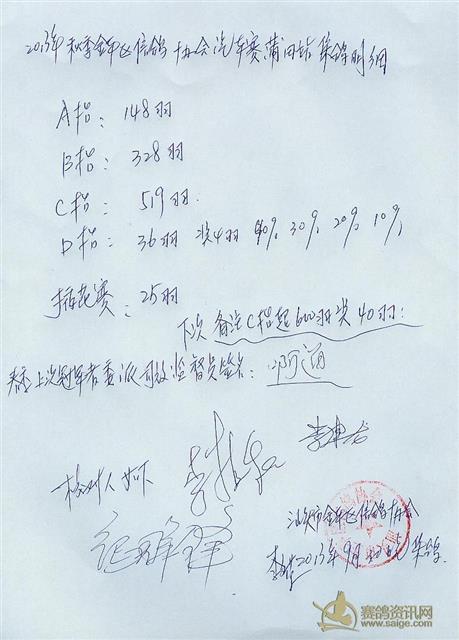 2013年秋季金平区信鸽协会汽车赛莆田站集鸽明细
A指: 148羽
B指: 328羽
C指: 519羽.
D指: 36羽 奖4羽 40% 30% 20% 10%
插花赛: 25羽
下次备注C指超600羽奖40羽.
上次冠军者委派司放监督员签名:
核对人如下
汕头市金平区信鸽协会
2013年9月 集鸽
赛鸽资讯网
www.saige.com